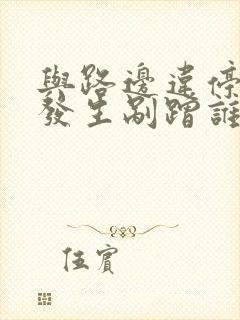 與路邊違停
發生剮蹭誰
伍賓